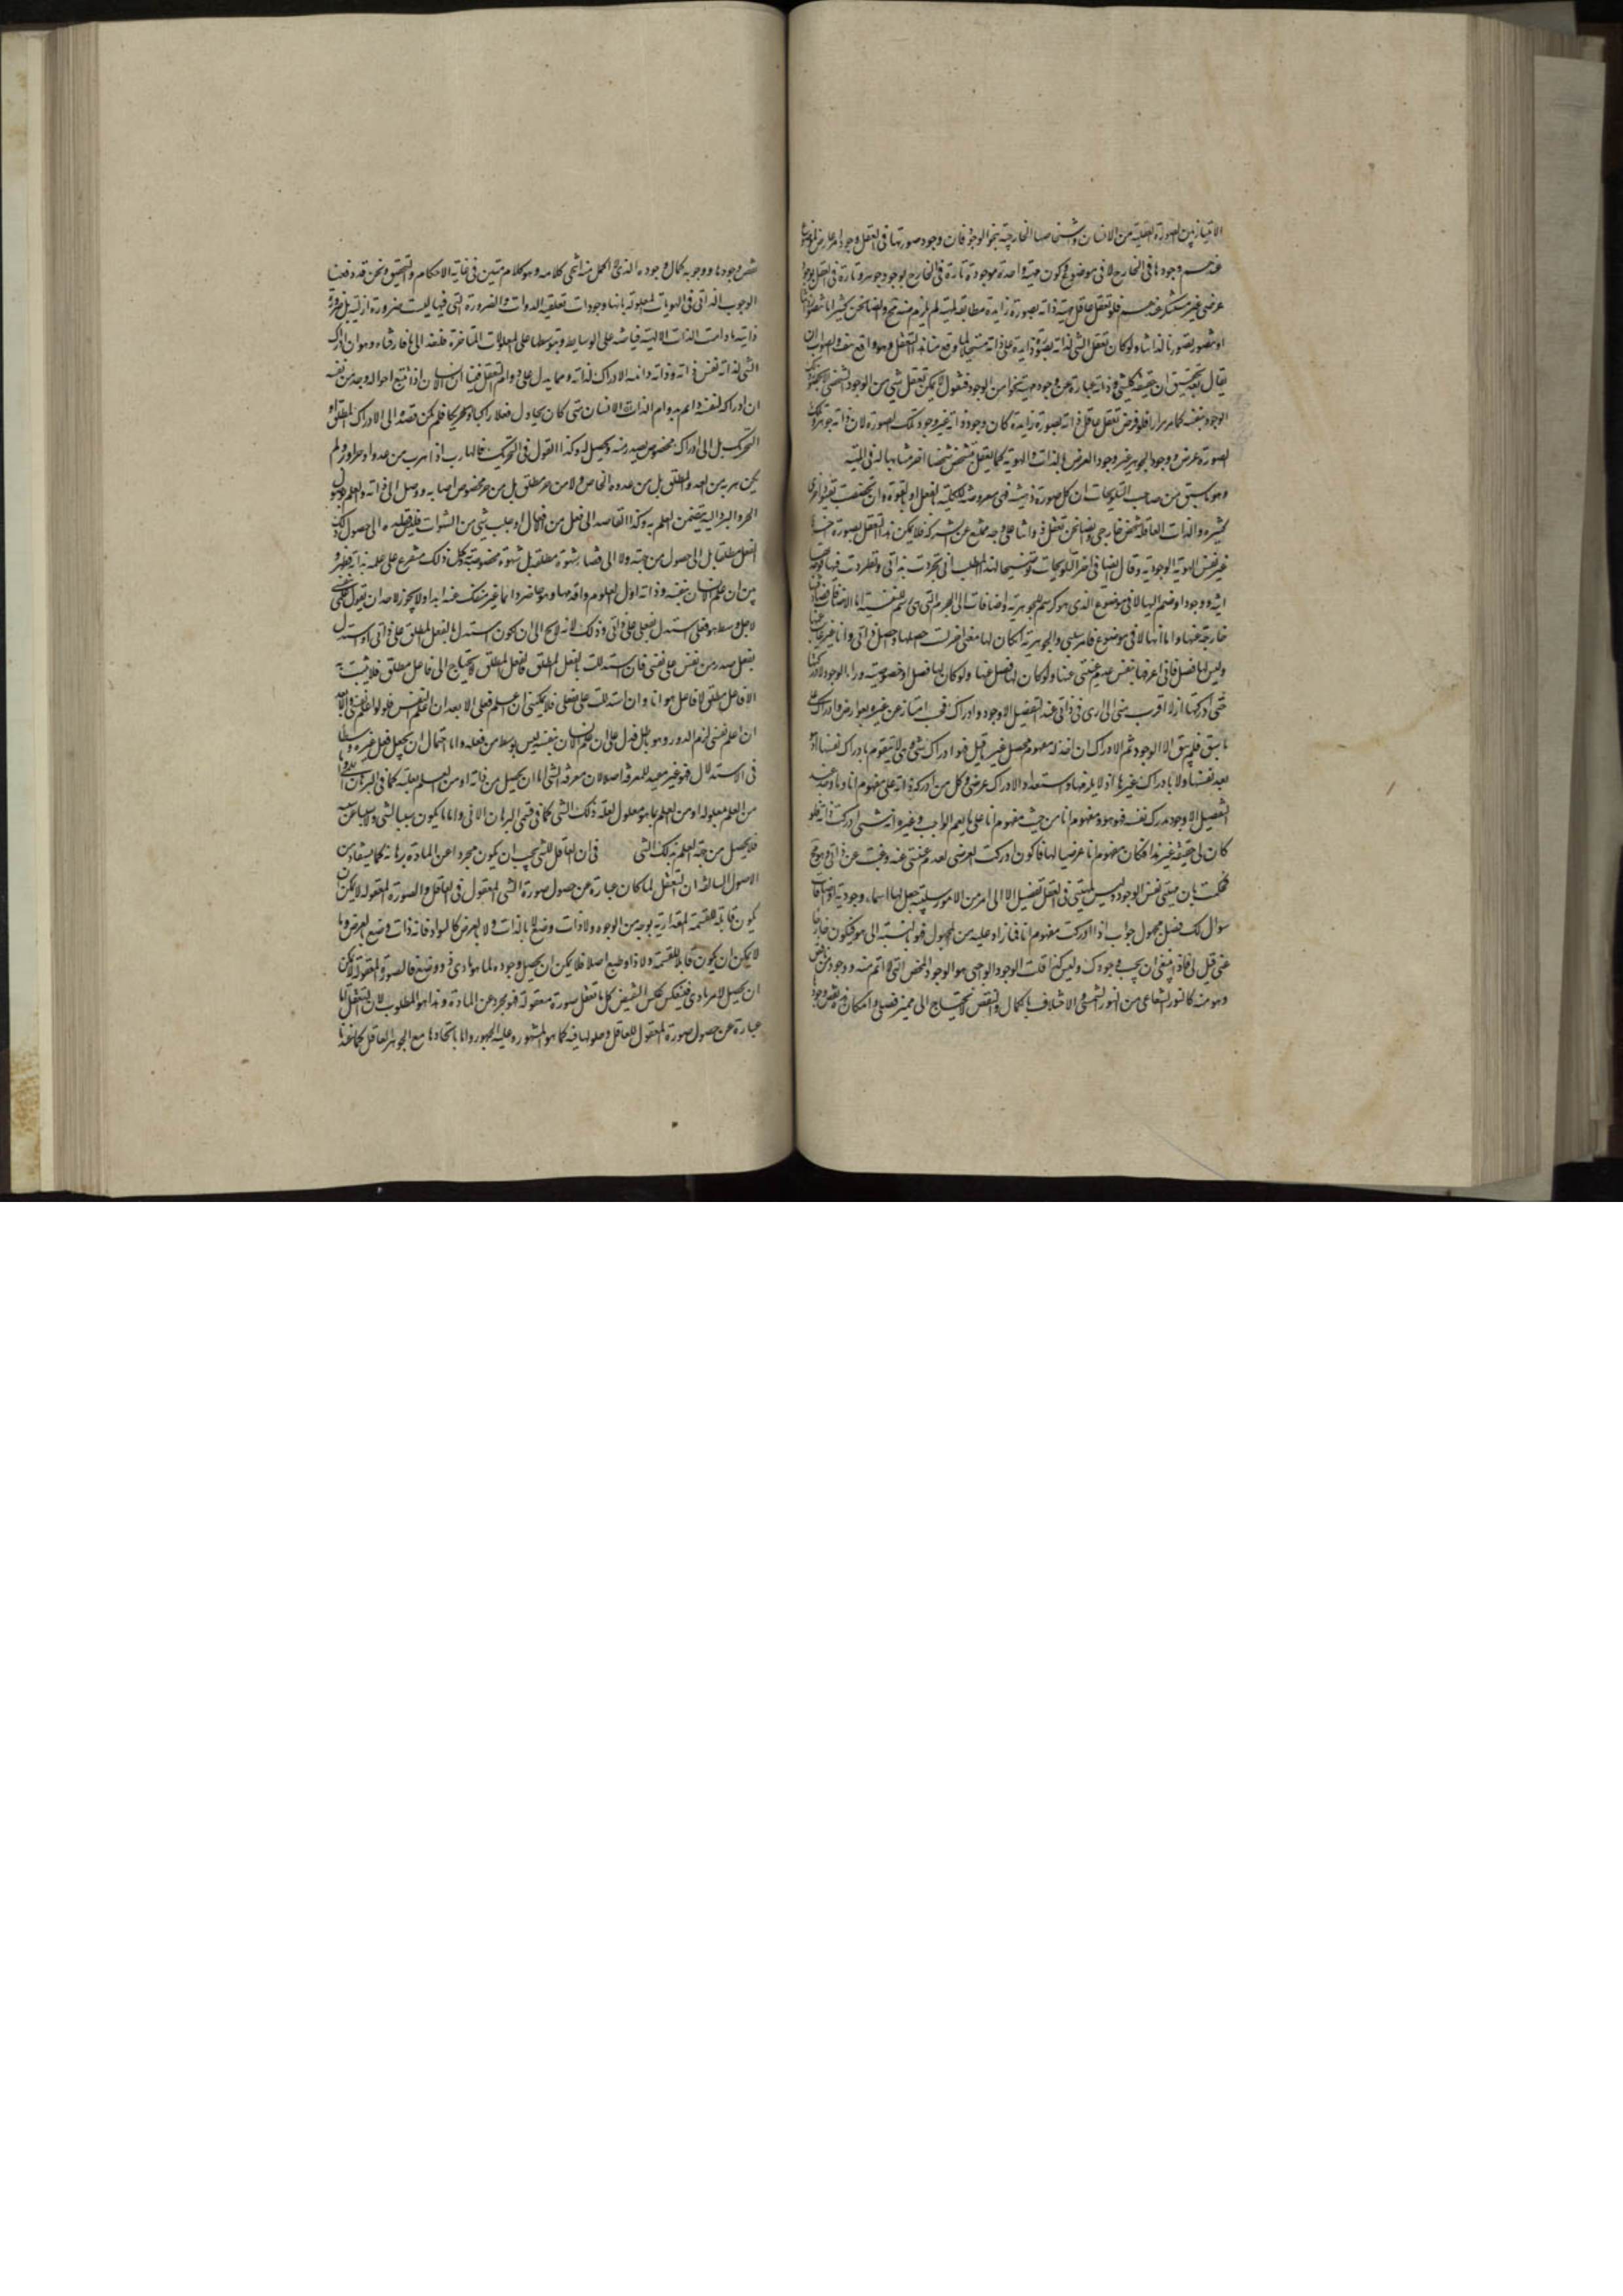 الامتياز بين الصورة العقلية من الانسان واشخاصها الخارجية بنحو الوجود فان وجود صورتها في العقل وجود امر عارض لموضوع
عندهم وجودها في الخارج لا في موضوع فكون مهية واحدة موجودة تارة في الخارج بوجود جوهر وتارة في العقل بوجود
عرضي غير مستنكر عندهم فلو تعقل عاقل مهية ذاته بصورة زايدة مطابقة لمهيته لم يلزم منه وايضا نحن كثيرا ما
او متصور بتصورنا لذاتنا ولو كان تعقل الشي لذاته بصورة زايدة على ذاته مستحيلا لما وقع منا هذا التعقل وهو واقع هف والصواب ان
يقال بعد تحقيق ان حقيقة كل شي وذاته عبارة عن وجود مهيته نحوا من الوجود فنقول لا يمكن تعقل شي من الوجود الشخصي
الوجود بنفسه كما مر مرارا فلو فرض تعقل عاقل ذاته بصورة زايدة كان وجود ذاته غير وجود تلك الصورة لان ذاته جوهر وتلك
الصورة عرض ووجود الجوهر غير وجود العرض بالذات والهوية كما يعقل متشخص شخصا اخر مشابها له في المهية
وهو ما سبق من صاحب التلويحات ان كل صورة ذهنية فهي معروضة للكلية بالفعل او بالقوة وان تخصصت بقيود اخرى
كثيرة والذات العاقلة شخص خارجي وايضا نحن نعقل ذواتنا على وجه ممتنع عن الشركة فلا يمكن هذا التعقل بصورة اخرى
غير نفس الهوية الوجودية وقال ايضا في اخر التلويحات توضيحا لهذا المطلب اني تجردت بذاتي ونظرت فيها فوجدتها
انية ووجودا وضم اليها لا في موضوع الذي هو كرسم للجوهرية واضافات الى الجرم التي هي رسم للنفسية اما الاضافات فصادفتها
خارجة عنها واما انها لا في موضوع فامر سلبي والجوهرية ان كان لها معنى اخر لست احصلها واحصل ذاتي وانا غير غائب عنها
وليس لها فصل فاني اعرفها بنفس عدم غيبتي عنها ولو كان لها فصل او خصوصية وراء الوجود لادركتها
حين ادركتها اذ لا اقرب مني الى ارى في ذاتي عند التفصيل الا وجودا وادراكا فحسب امتاز عن غيره بعوارض وادراك على
ما سبق فلم يبق الا الوجود ثم الادراك ان اخذ له مفهوم محصل غير ما قيل فهو ادراك شي وهي لا يتقوم بادراك نفسها اذ هو
بعد نفسها ولا بادراك غيرها اذ لا يلزمها واستعداد الادراك عرضي وكل من ادرك ذاته على مفهوم انا وما وجد عند
التفصيل الا وجود مدرك نفسه فهو هو ومفهوم انا من حيث مفهوم انا على ما يعم الواجب وغيره انه شي ادرك ذاته فلو
كان لي حقيقة غير هذا فكان مفهوم انا عرضيا لها فاكون ادركت العرضي لعدم غيبتي عنه وغبت عن ذاتي وهو مح
فحكمت بان مهيتي نفس الوجود وليس لمهيتي في العقل تفصيل الا الى امرين الامور سلبية جعل لها اسماء وجودية او اضافات
سوال لك فصل مجهول جواب اذا ادركت مفهوم انا فما زاد عليه من المجهول فهو بالنسبة الى هو فيكون خارجا
عني قيل لي فاذا ينبغي ان يجب وجودك وليس كذا قلت الوجود الواجبي هو الوجود المحض الذي لا اتم منه ووجودي ناقص
وهو منه كالنور الشعاعي من النور الشمسي والاختلاف بالكمال والنقص لا يحتاج الى مميز فصلي وامكان هذه نقص وجودها
نقص وجودها ووجوبه كمال وجوده الذي لا اكمل منه انتهى كلامه وهو كلام متين في غاية الاحكام والتحقيق ونحن قد دفعنا
الوجوب الذاتي في الهويات المعلولة بانها وجودات تعلقية الذوات والضرورة التي فيها ليست ضرورة ازلية بل ضرورة
ذاتية ما دامت الذات الالهية فياضة على الوسايط وبتوسطها على المعلولات المتاخرة فلنعد الى ما فارقناه وهو ان ادراك
الشي لذاته نفس ذاته وذاته دائمة الادراك لذاته ومما يدل على دوام التعقل فينا ان الانسان اذا تتبع احواله وجد من نفسه
ان ادراكه لنفسه دائم بدوام الذات والانسان متى كان يحاول فعلا ادراكيا او تحريكيا فلم يكن قصده الى الادراك المطلق او
التحريك بل الى ادراك مخصوص يصدر منه ويحصل له وكذا القول في التحريك فالهارب اذا هرب من عدو او حر او برد لم
يكن هربه من العدو المطلق بل من عدوه الخاص ولا من حر مطلق بل من حر مخصوص اصابه ووصل الى ذاته والعلم بوصول
الحر والبرد اليه يتضمن العلم به وكذا القاصد الى فعل من افعال او طلب شي من الشهوات فليس قصده الى حصول ذلك
الفعل مطلقا بل الى حصول من جهته ولا الى قضاء شهوة مطلقة بل شهوة مخصوصة به وكل ذلك متفرع على علمه بذاته فظهر
من ان علم الانسان بنفسه وذاته اول العلوم واقدمها وهو حاضر دائما غير منفك عنه ابدا ولا يجوز لاحد ان يقول علمي بنفسي
لاجل وسط هو فعلي استدل بفعلي على ذاتي وذلك لانه لا يخلو اما ان يكون استدل بالفعل المطلق على ذاتي او استدل
بفعل صدر من نفسي على نفسي فان استدللت بالفعل المطلق فالفعل المطلق لا يحتاج الا الى فاعل مطلق فلا يثبت به
الا فاعل مطلق لا فاعل هو انا وان استدللت على بفعلي فلا يمكنني ان اعلم فعلي الا بعد ان اعلم نفسي فلو لم اعلم نفسي الا بعد
ان اعلم نفسي لزم الدور وهو باطل فدل على ان علم الانسان بنفسه ليس بوسط من فعله واما احتمال ان يجعل فعل غيره وسطا
في الاستدلال فهو غير مفيد للمعرفة اصلا لان معرفة الشي اما ان يحصل من ذاته او من العلم بعلته كما في البرهان اللمي او
من العلم بمعلوله او من العلم بما هو معلول لعلة ذلك الشي كما في قسمي البرهان الاني واما ما يكون سببا للشي ولا مسببا عنه
فلا يحصل من جهة العلم به ذلك الشي في ان العاقل للشي يجب ان يكون مجردا عن المادة برهانه كما يستفاد من
الاصول السالفة ان التعقل لما كان عبارة عن حصول صورة الشي المعقول في العاقل والصورة المعقولة لا يمكن ان
يكون قابلة للقسمة المقدارية بوجه من الوجوه ولا ذات وضع لا بالذات ولا بالعرض كالسواد فانه ذات وضع بالعرض وما
لا يمكن ان يكون قابلا للقسمة ولا ذا وضع اصلا فلا يمكن ان يحصل وجوده لما هو مادي ذو وضع فالصورة المعقولة لا يمكن
ان يحصل لامر مادي فينعكس عكس النقيض كل ما تعقل صورة معقولة فهو مجرد عن المادة وهذا هو المطلوب لان التعقل اما
عبارة عن حصول صورة المعقول للعاقل وحلولها فيه كما هو المشهور وعليه الجمهور واما باتحادها مع الجوهر العاقل كما عندنا